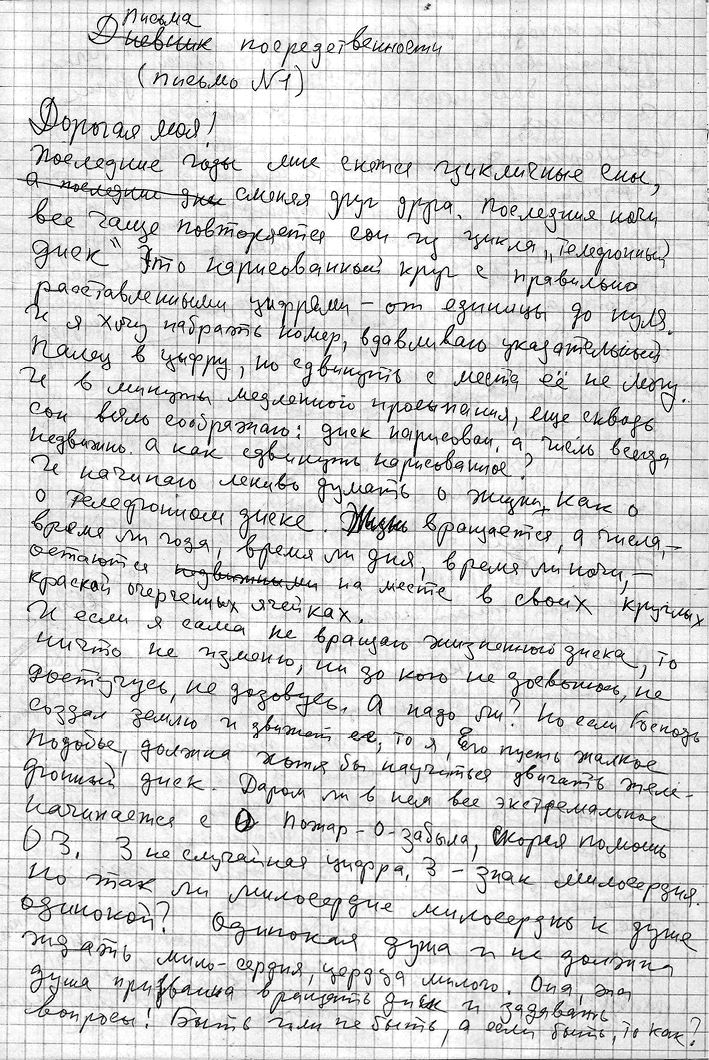 Письма
Дневник посредственности
(письмо N1)
Дорогая моя!
Последние годы мне снятся цикличные сны,
а последние дни сменяя друг друга. Последния ночи
все чаще повторяется сон из цикла „Телефонный
диск" Это нарисованный круг с правильно
расставленными цифрами – от единицы до нуля.
И я хочу набрать номер, вдавливаю указательный
палец в цифру, но сдвинуть с места её не могу.
И в минуты медленного просыпания, еще сквозь
сон вяло соображаю: диск нарисован, а число всегда
недвижно. а как сдвинуть нарисованное?
И начинаю лениво думать о жизни, как о
о телефонном диске. Жизнь вращается, а числа, –
время ли года, время ли дня, время ли ночи, –
остаются недвижными на месте в своих круглых
краской очерченных ячейках.
И если я сама не вращаю жизненного диска, то
ничто не изменю, ни до кого не дозвонюсь, не
достучусь, не дозовусь. А надо ли? Но если Господь
создал землю и движет ее, то я, Его пусть жалкое
подобье, должна хотя бы научиться двигать теле-
фонный диск. Даром ли в нем все экстремальное
начинается с 0 Пожар – 0 – забыла, скорая помощь
03. 3 не случайная цифра. 3 – знак милосердия.
Но так ли милосердие милосердно к душе
одинокой? Одинокая душа и не должна
ждать мило-сердия, сердца милого. Она, эта
душа призвана вращать диск и задавать
вопросы! Быть или не быть, а если быть, то как?